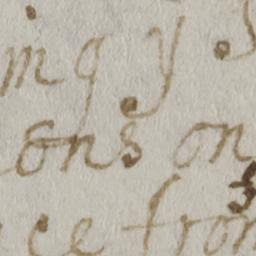 ing y
ons on
ce from